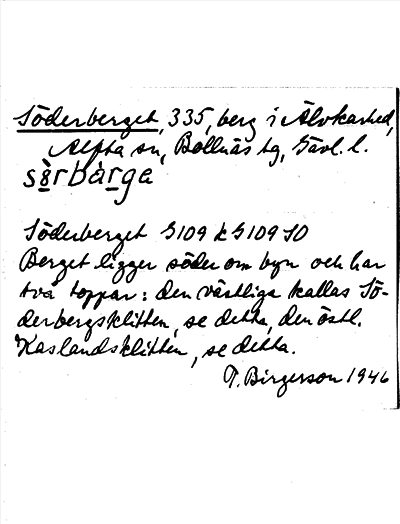 Söderberget, 335, berg i Älvkarhed,
Alfta sn, Bollnäs tg, Gävl. l.
sö̀rbàrge
Söderberget G109 k G109 SO
Berget ligger söder om byn och har
två toppar: den västliga kallas Sö-
derbergsklitten, se detta, den östl.
Kaslandsklitten, se detta.
T. Birgerson 1946